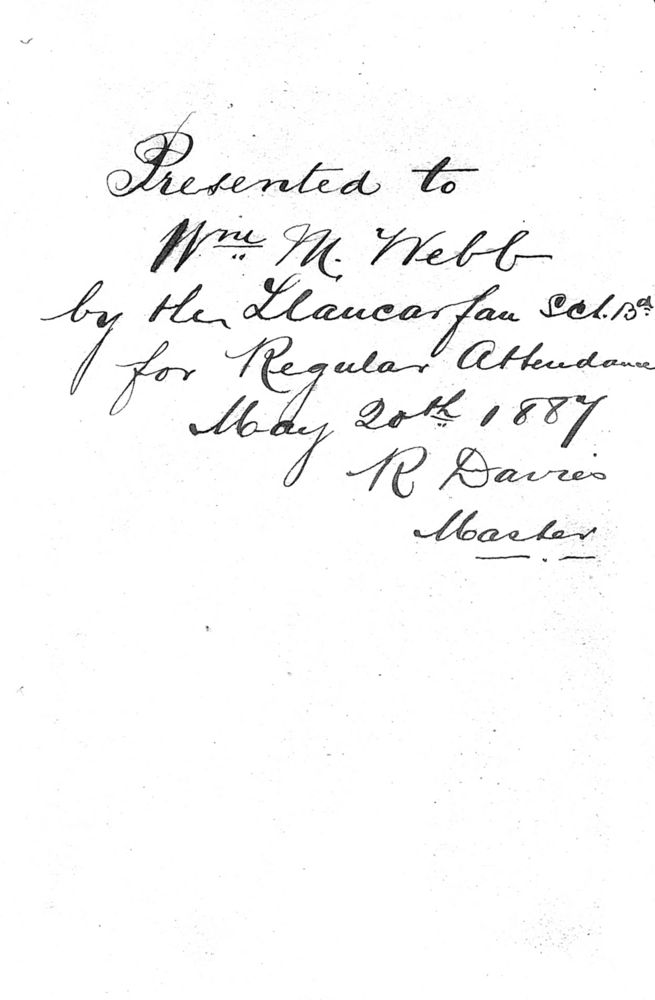 Presented to
Wm M. Webb
by the Llancarfan Sch. Bd.
for Regular Attendance
May 20th 1887
R Davies
Master